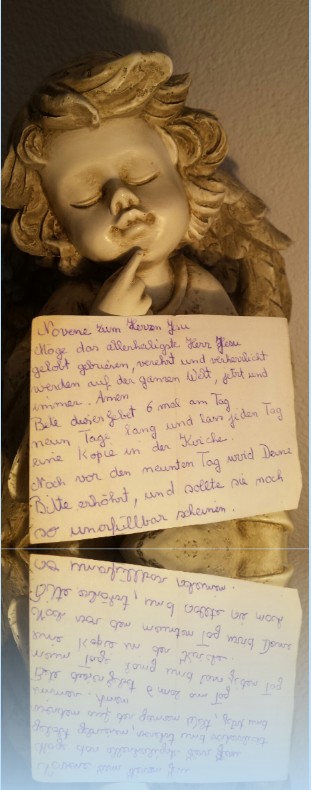 Novene zum Herzen Jesu
Möge das allerheiligste Herz Jesu
gelobt gepriesen, verehrt und verherrlicht
werden auf der ganzen Welt, jetzt und
immer. Amen
Bete dieses Gebet 6 mal am Tag
neun Tage lang und lass jeden Tag
eine Kopie in der Kirche.
Noch vor den neunten Tag wird Deine
Bitte erhöhrt, und sollte sie noch
so unerfüllbar scheinen.